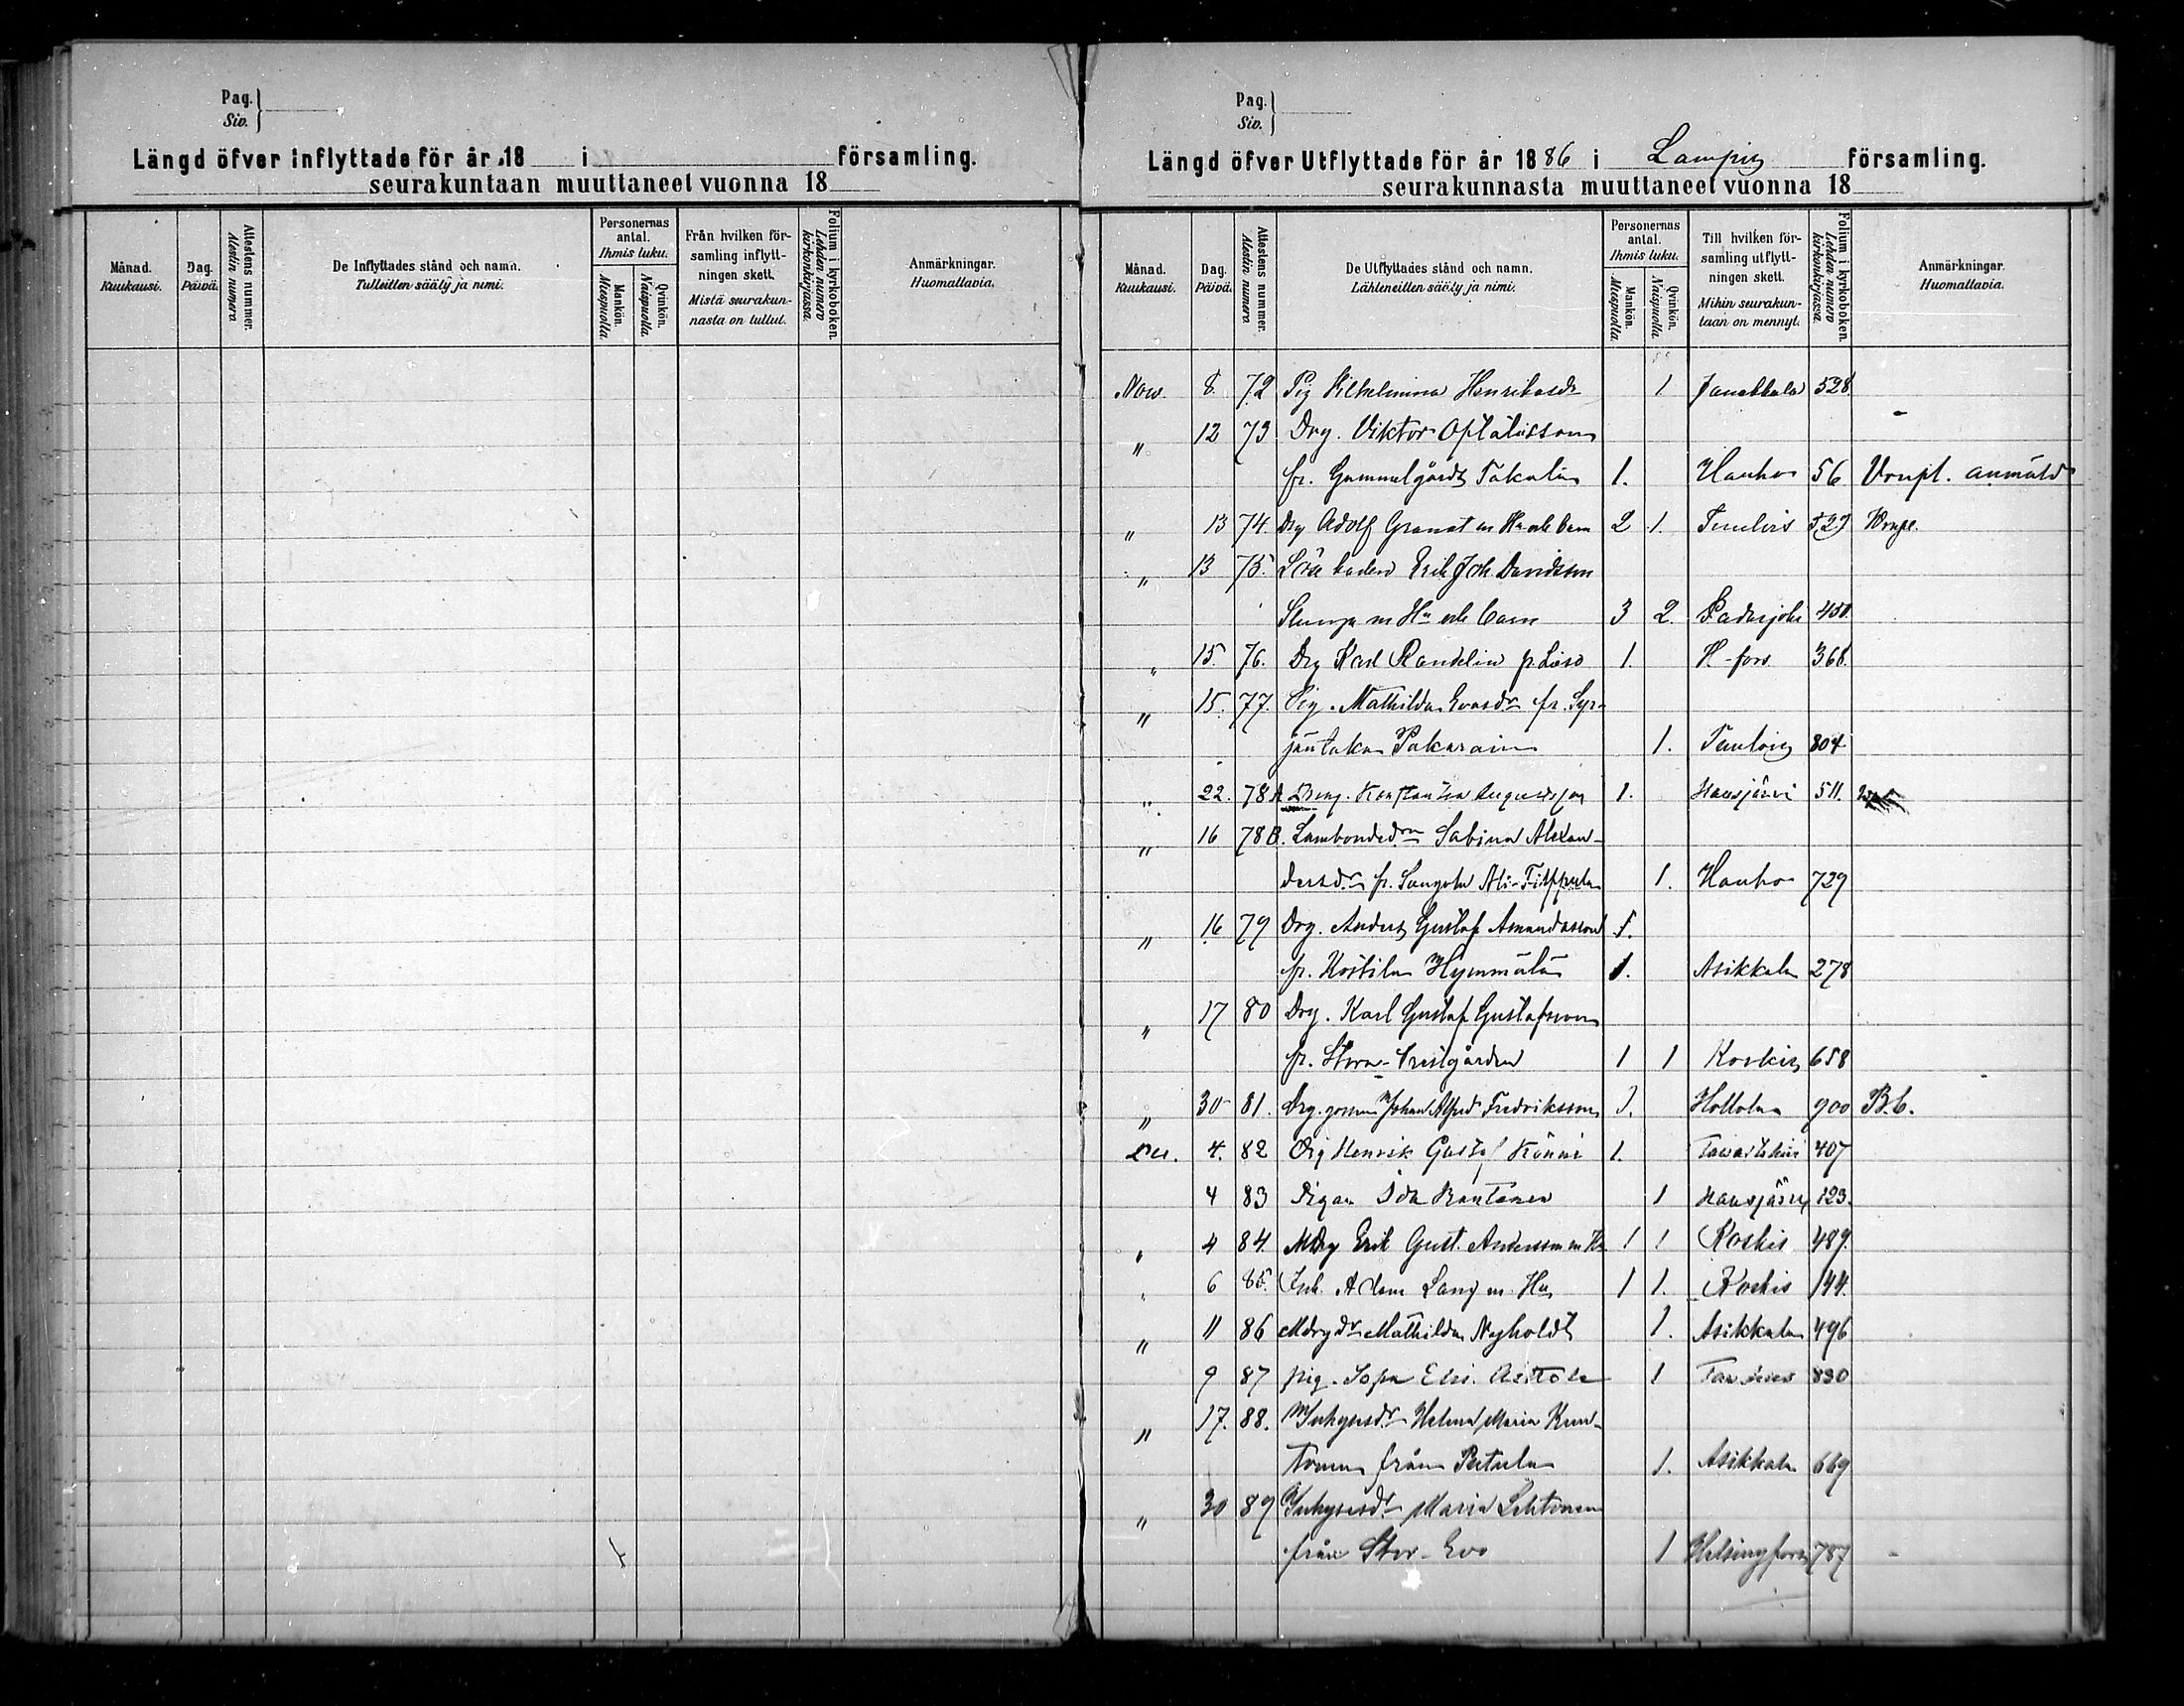 Pag.
Siv.
Längd öfver Inflyttade för år 18 i församling.
seurakuntaan muuttaneet vuonna 18
Månad.
Kuukausi.
Dag.
Päivä.
Attestens nummer.
Atestin numero
De Inflyttades stånd och namn.
Tulleitten sääty ja nimi.
Personernas antal.
Ihmis luku.
Mankön.
Miespuolia.
Qvinkön.
Naispuolia.
Från hvilken för-
samling inflytt-
ningen skett.
Mistä seurakun-
nasta on tullut.
Folium i kyrkoboken.
Lehden numero
kirkonkirjassa.
Anmärkningar.
Huomattavia.
Pag.
Siv.
Längd öfver Utflyttade för år 1886 i Lampis församling.
seurakunnasta muuttaneet vuonna 18
Månad.
Kuukausi.
Dag.
Päivä.
Attestens nummer.
Atestin numero
De Utflyttades stånd och namn.
Lähteneitten sääty ja nimi.
Personernas antal.
Ihmis luku.
Mankön.
Miespuolia.
Qvinkön.
Naispuolia.
Till hvilken för-
samling utflytt-
ningen skett.
Mihin seurakun-
taan on mennyt.
Folium i kyrkoboken.
Lehden numero
kirkonkirjassa.
Anmärkningar.
Huomattavia.
Nov. 8. 72 Pig Vilhelmina Henriksdr 1 Janakkala 528.
" 12 73 Drg. Viktor
fr. Gammelgård Takala 1. Hauho 56 anmäld
" 13 74. Drg Adolf Granat m Hu och barn 2 1. Tenlois 527
" 13 75. Löse karlen Erik Joh. Davidsson
m Hu och barn 3 2. Padasjoki 451.
" 15. 76. Drg Karl Randelin 1. H-fors 368.
" 15. 77. Pig. Mathilda Evasdr fr. Syr-
jäntaka Pakarain 1. Tenlois 804
" 22. 78A Dreng. Konstantin Augustsson 1. Hausjärvi 511.
" 16 78B. Sabina Alexan-
dersdr fr. Ali- 1. Hauho 729
" 16 79 Drg. Anders Gustaf Amandasson 1.
fr. Kostila Hymmälä 1. Asikkala 278
" 17 80 Drg. Karl Gustaf Gustafsson
fr. Stora-Prestgården 1 1 Koskis 658
" 30 81. Drg. Johan Alfred Fredriksson 1. Hollola 900 B.b.
Dec. 4. 82 Henrik Gustaf Könni 1. 407
4 83 Pigan Ida Rantanen 1 Hausjärvi 123.
" 4 84. MDrg Erik Gust. Andersson m Hu 1 1 Koskis 489.
" 6 85. Inh. Adam Lang m Hu 1 1. Koskis 144.
" 11 86 Mdrgdr Mathilda Nyholdt 1. Asikkala 496
9 87 pig. Sofia 1 830
" 17. 88. Inhysesdr Helena Maria
från 1. Asikkala 669
" 30 89 Inhysesdr Maria Lehtonen
från Stor-Evo 1 Helsingfors 787